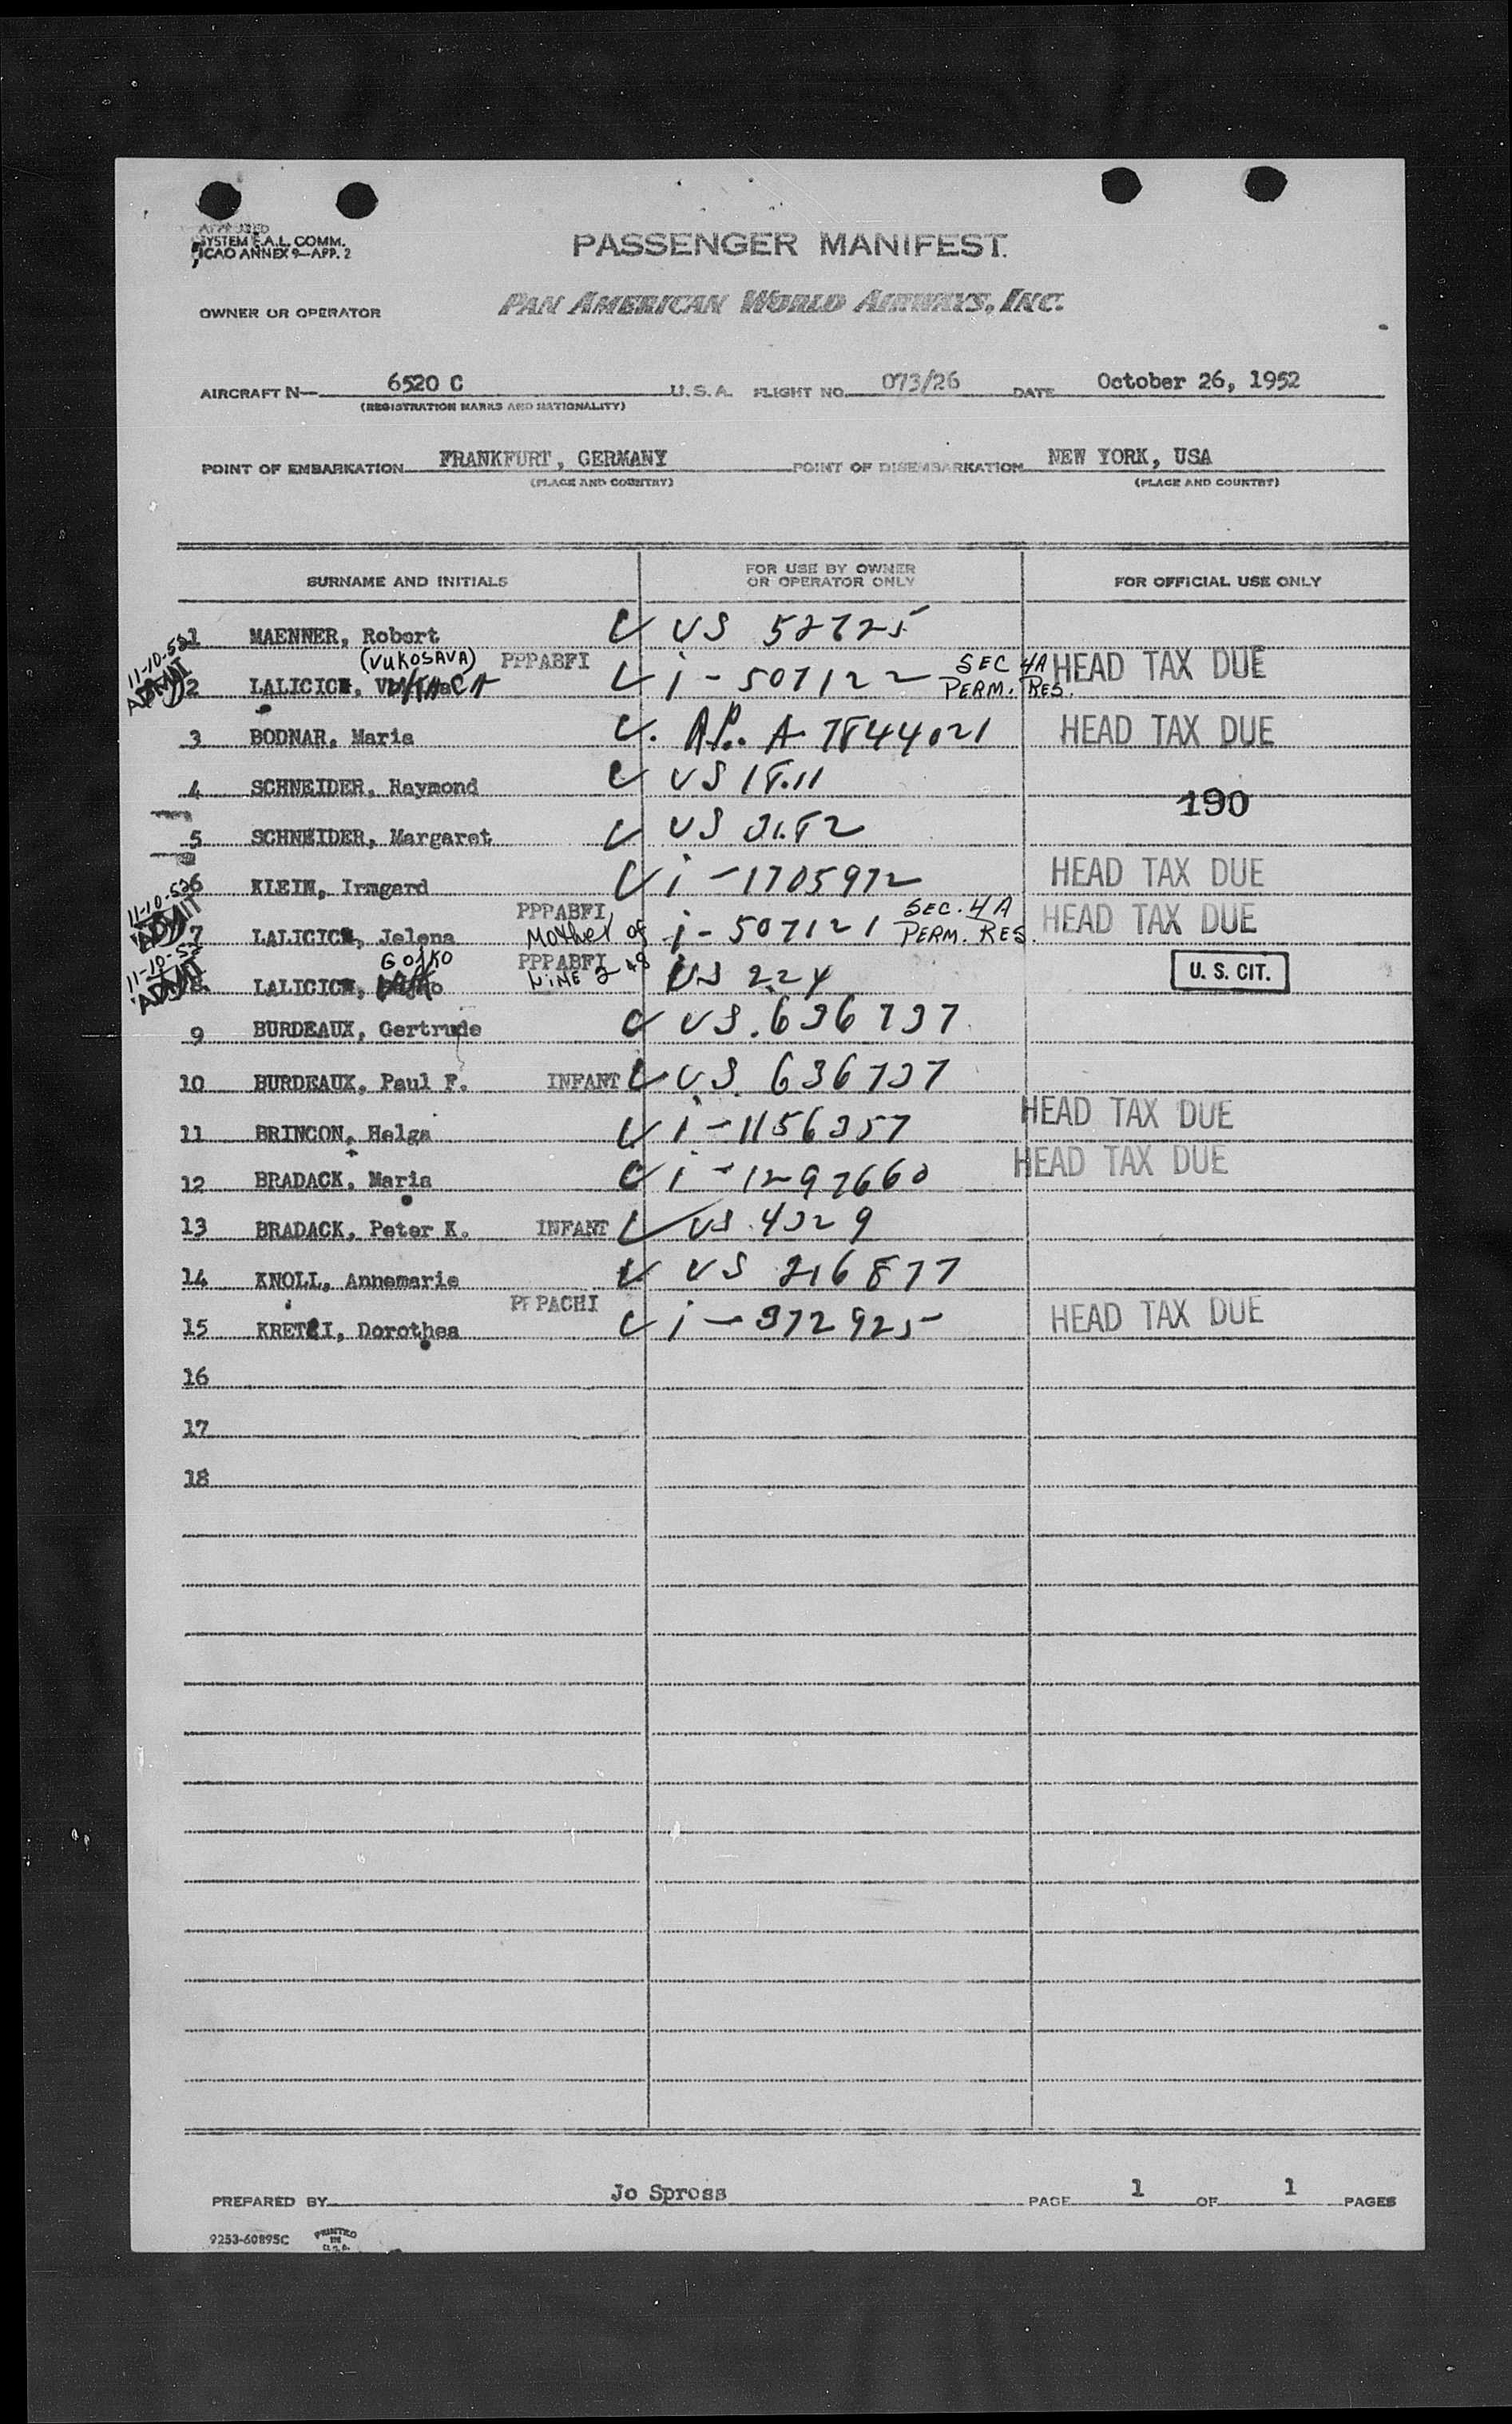 APPROVED
SYSTEM F.A.L. COMM.
ICAO ANNEX 9—APP. 2
PASSENGER MANIFEST
OWNER OR OPERATOR PAN AMERICAN WORLD AIRWAYS, INC.
AIRCRAFT N— 6520 C U.S.A. FLIGHT NO. 073/26 DATE October 26, 1952
(REGISTRATION MARKS AND NATIONALITY)
POINT OF EMBARKATION FRANKFURT, GERMANY POINT OF DISEMBARKATION NEW YORK, USA
(PLACE AND COUNTRY) (PLACE AND COUNTRY)
SURNAME AND INITIALS FOR USE BY OWNER OR OPERATOR ONLY FOR OFFICIAL USE ONLY
1 MAENNER, Robert US 52725
11-10-52 (VUKOSAVA) PPPABFI SEC 4A
ADMIT 2 LALICICH, i-507122 PERM. RES. HEAD TAX DUE
3 BODNAR, Maria A-7844021 HEAD TAX DUE
4 SCHNEIDER, Raymond US 18.11
190
5 SCHNEIDER, Margaret US 31.82
6 KLEIN, Irmgard i-1705972 HEAD TAX DUE
11-10-52 PPPABFI SEC. 4A
ADMIT 7 LALICICH, Jelena Mother of i-507121 PERM. RES. HEAD TAX DUE
11-10-52 GOJKO PPPABFI
ADMIT 8 LALICICH, LINE 2 & 8 US 224 U. S. CIT.
9 BURDEAUX, Gertrude US.636737
10 BURDEAUX, Paul F. INFANT US 636737
11 BRINCON, Helga i-1156357 HEAD TAX DUE
12 BRADACK, Maria i-1297660 HEAD TAX DUE
13 BRADACK, Peter K. INFANT US.4329
14 KNOLL, Annemarie US 216877
PPPACHI
15 KRETZI, Dorothea i-372925 HEAD TAX DUE
16
17
18
PREPARED BY Jo Spross PAGE 1 OF 1 PAGES
9253-60895C PRINTED IN U.S.A.